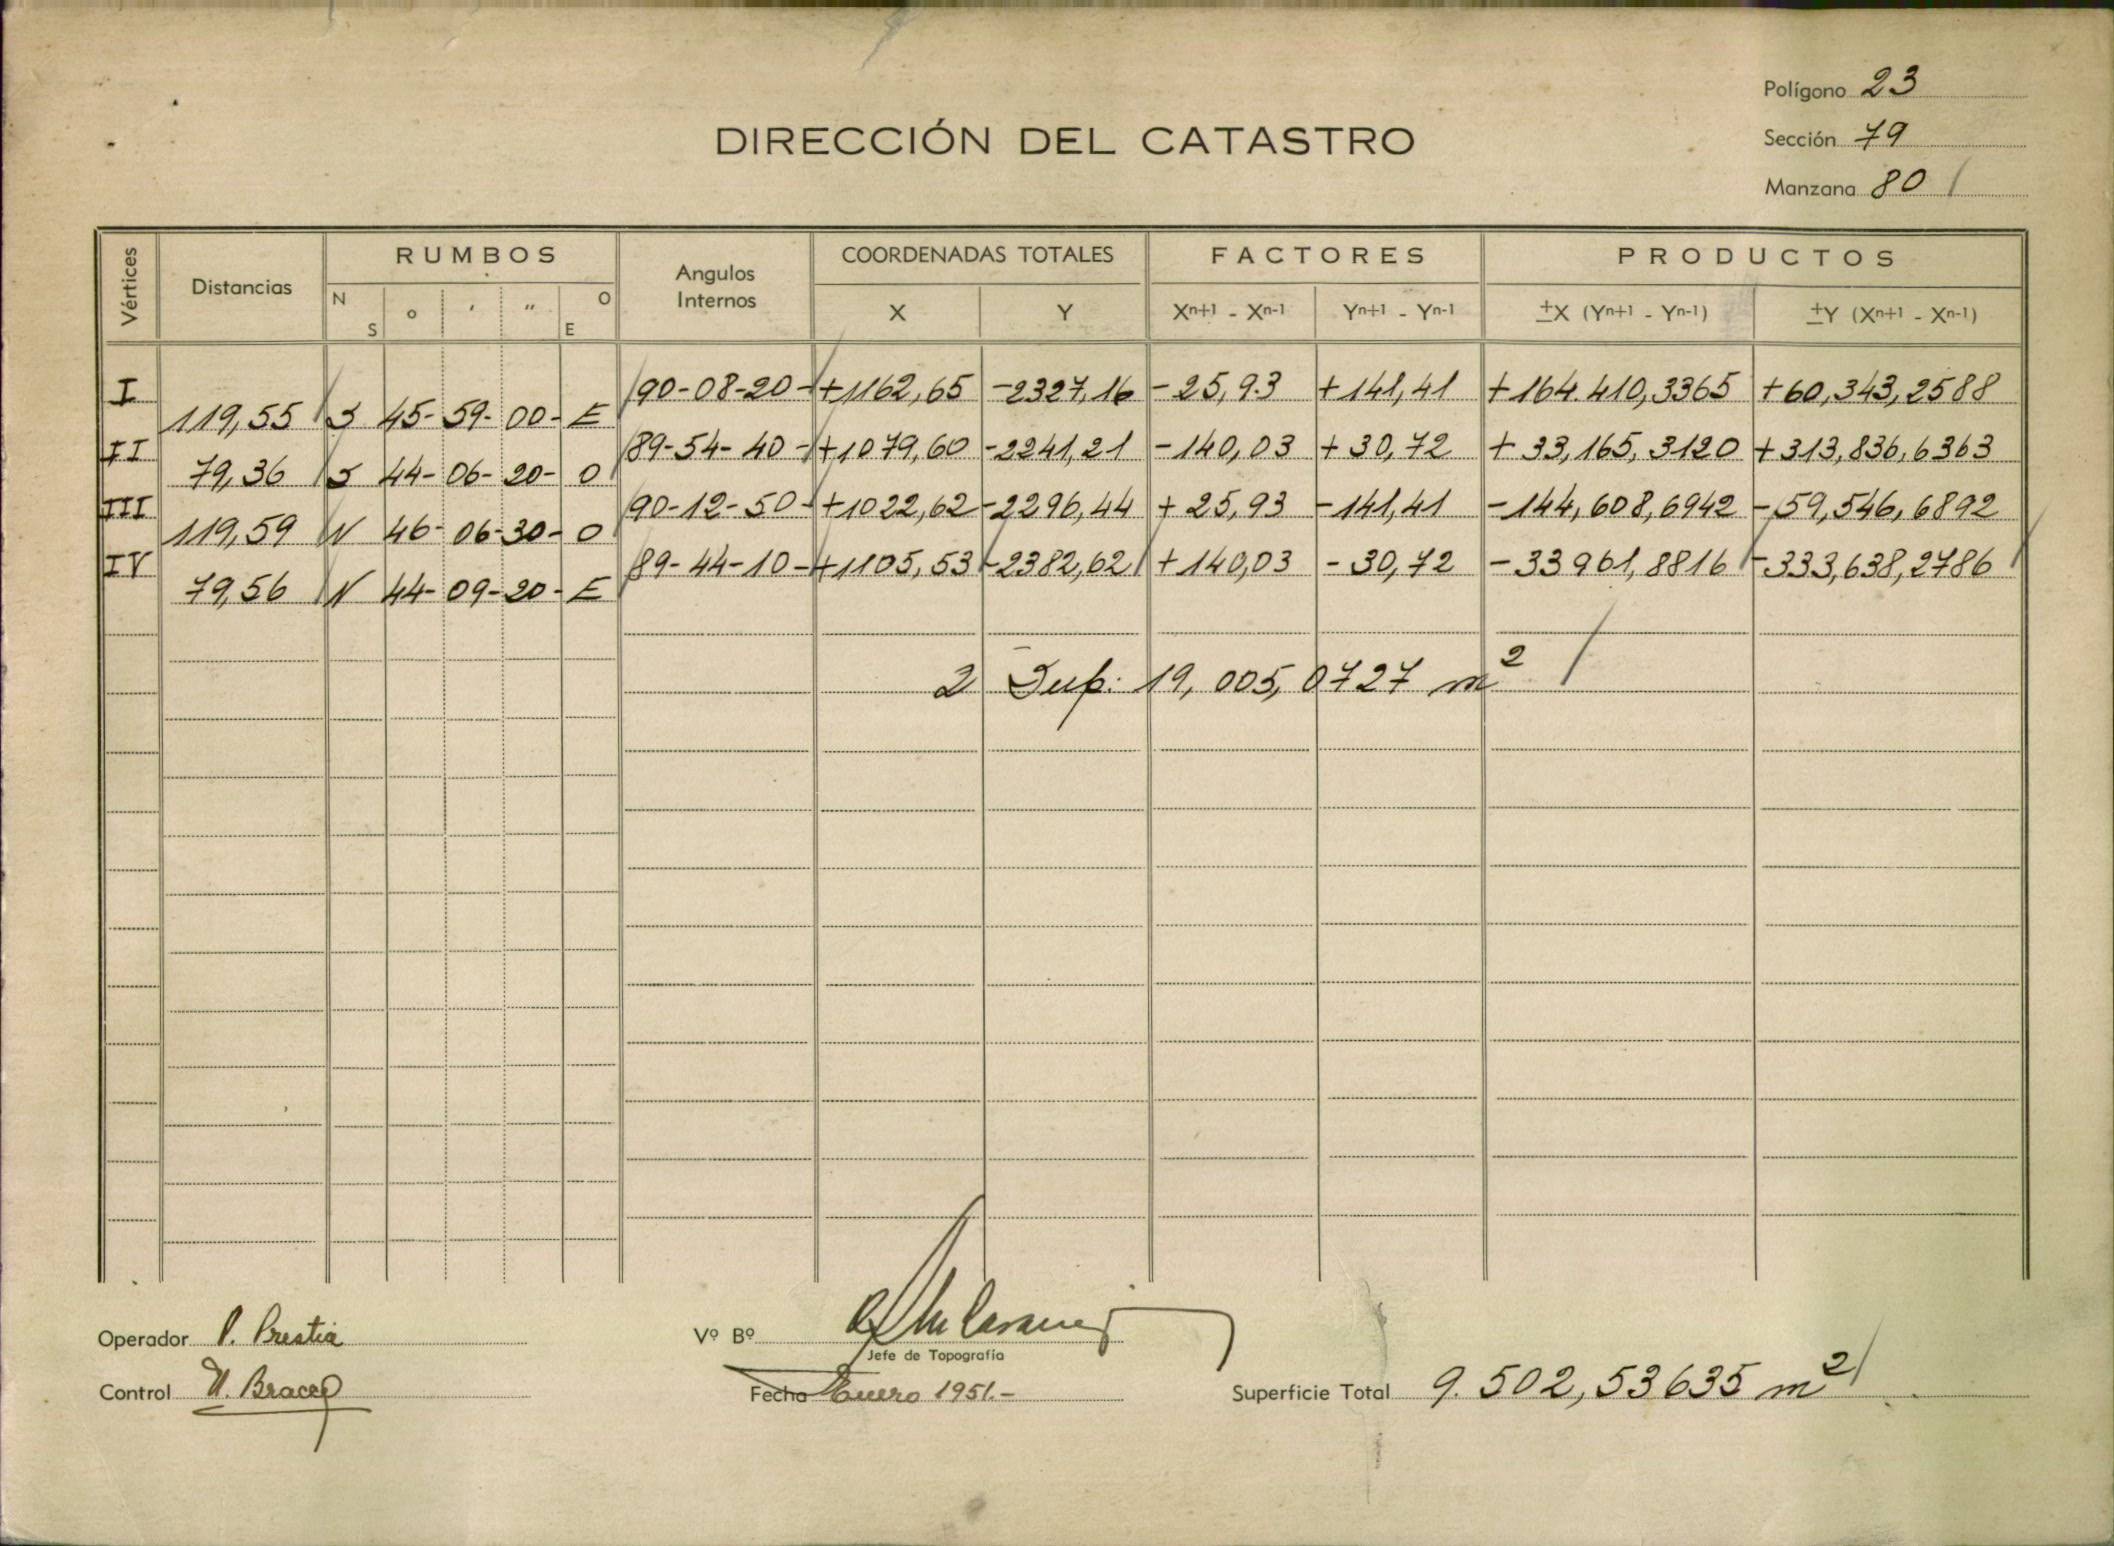 Polígono 23
DIRECCIÓN DEL CATASTRO
Sección 79
Manzana 80
Vértices Distancias RUMBOS Angulos Internos COORDENADAS TOTALES FACTORES PRODUCTOS
N S ° ' " O E X Y Xn+1 - Xn-1 Yn+1 - Yn-1 ±X (Yn+1 - Yn-1) ±Y (Xn+1 - Xn-1)
I 90-08-20- +1162,65 -2327,16 -25,93 +141,41 +164.410,3365 +60,343,2588
119,55 S 45- 59- 00- E
II 89-54-40- +1079,60 -2241,21 -140,03 +30,72 +33,165,3120 +313,836,6363
79,36 S 44- 06- 20- O
III 90-12-50- +1022,62 -2296,44 +25,93 -141,41 -144,608,6942 -59,546,6892
119,59 N 46- 06- 30- O
IV 89-44-10- +1105,53 -2382,62 +140,03 -30,72 -33961,8816 -333,638,2786
79,56 N 44- 09- 20- E
2 Sup: 19,005,0727 m²
Operador P. Prestia Vº Bº
Jefe de Topografía
Control Bracco Fecha Enero 1951.- Superficie Total 9.502,53635 m²